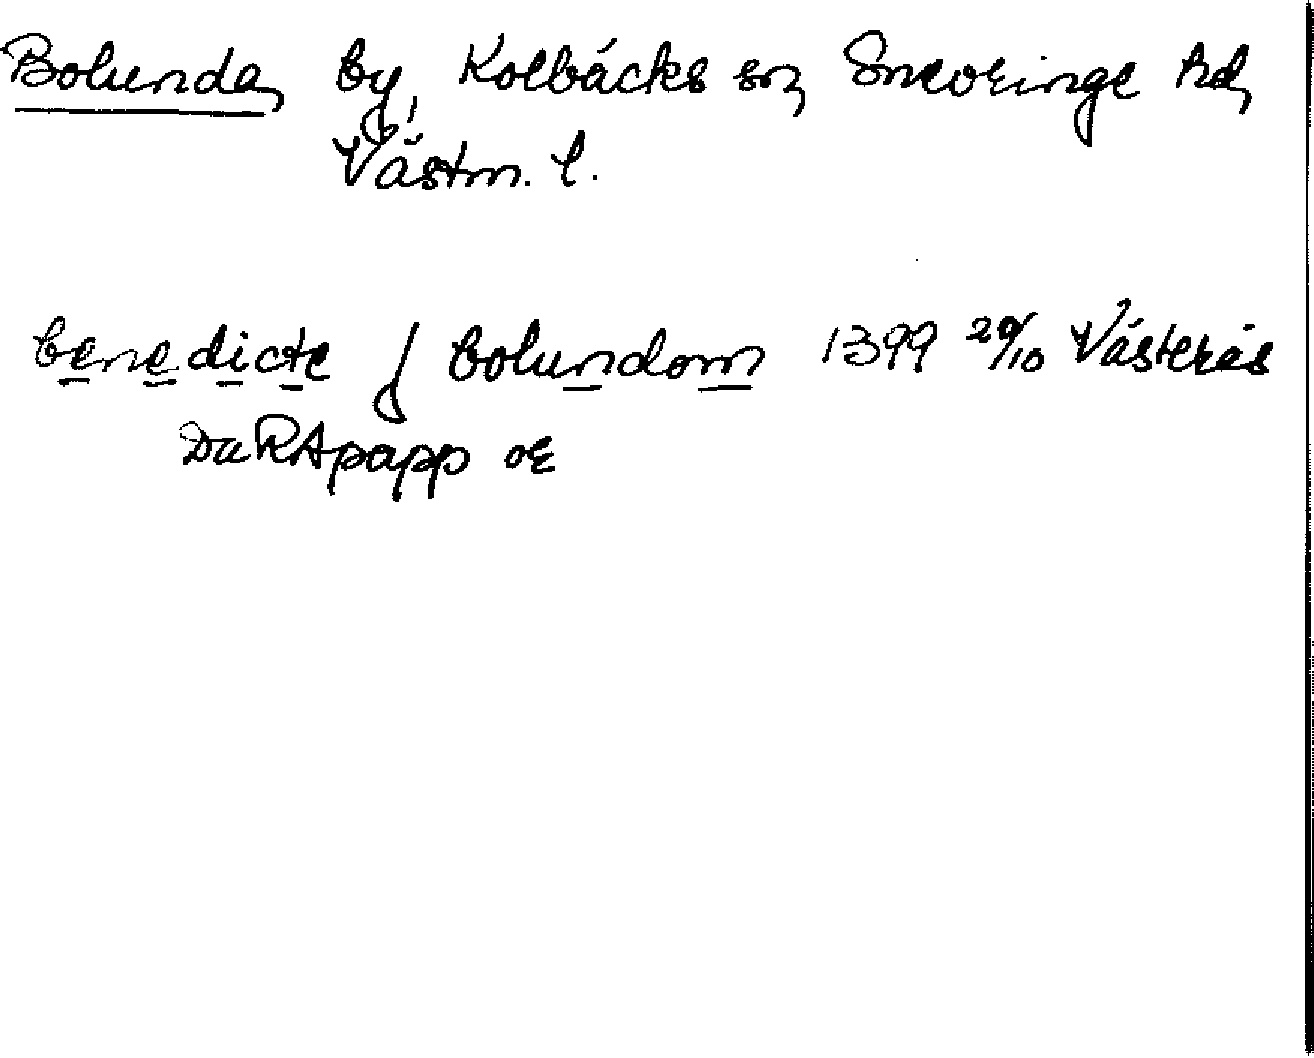 Bolunda, by, Kolbäcks sn, Snevringe hd,
Västm. l.
benedicte j bolundom 1399 29/10 Västerås
DaRApapp or